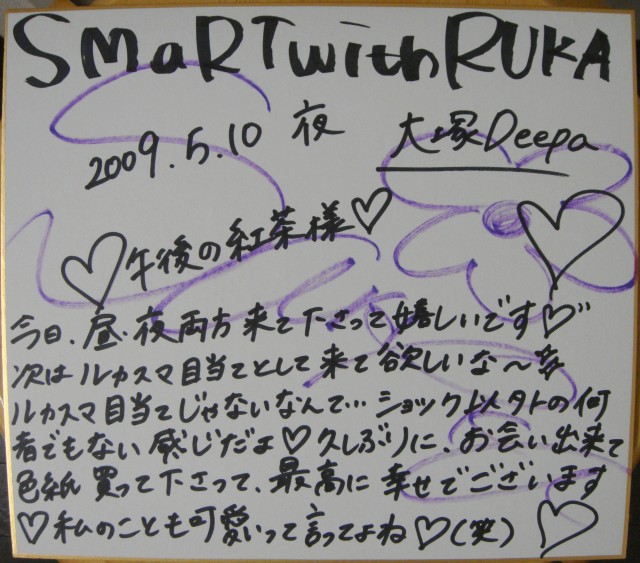 SMaRTwithRUKA
2009.5.10 夜 大塚Deepa
♡午後の紅茶様♡
今日、昼・夜両方来て下さって嬉しいです♡
次はルカスマ目当てとして来て欲しいな〜
ルカスマ目当てじゃないなんて…ショック以外の何
者でもない感じだよ♡久しぶりに、お会い出来て
色紙買って下さって、最高に幸せでございます
♡私のことも可愛いって言ってよね♡(笑)♡